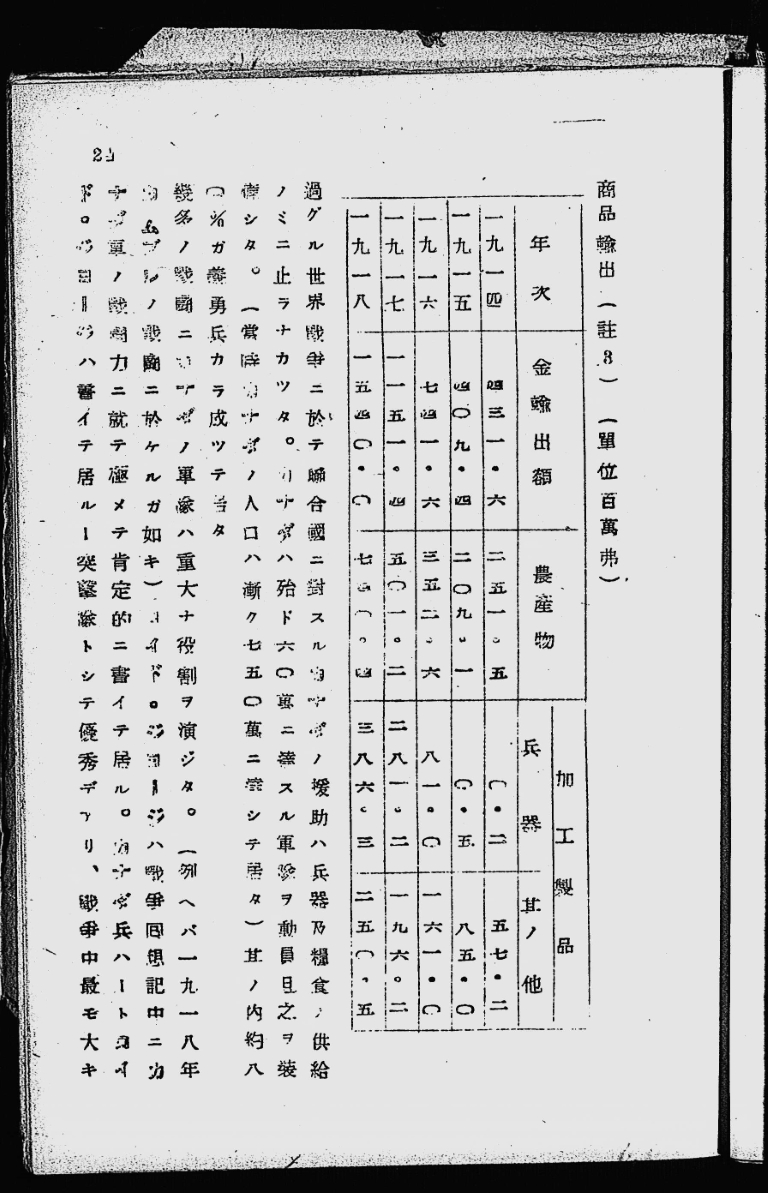 商品輸出（註3）（單位百萬弗）
年次 金輸出額 農產物 加工製品
兵器 其ノ他
一九一四 四三一・六 二五一・五 〇・二 五七・二
一九一五 四〇九・四 二〇九・一 〇・五 八五・〇
一九一六 七四一・六 三五二・六 八一・〇 一六一・〇
一九一七 一一五一・四 五〇一・二 二八一・二 一九六・二
一九一八 一五四〇・〇 七四〇・四 三八六・三 二五〇・五
過グル世界戰爭ニ於テ聯合國ニ對スルカナダノ援助ハ兵器及糧食ノ供給
ノミニ止ラナカツタ。カナダハ殆ド六〇萬ニ達スル軍隊ヲ動員且之ヲ裝
備シタ。（當時カナダノ人口ハ漸ク七五〇萬ニ達シテ居タ）其ノ內約八
〇%ガ義勇兵カラ成ツテ居タ
幾多ノ戰鬪ニカナダノ軍隊ハ重大ナ役割ヲ演ジタ。（例ヘバ一九一八年
ノ戰鬪ニ於ケルガ如キ）ロイド・ジヨージハ戰爭回想記中ニカ
ナダ軍ノ戰鬪力ニ就テ極メテ肯定的ニ書イテ居ル。カナダ兵ハートロイ
ド・ジヨージハ書イテ居ルー突擊隊トシテ優秀デアリ、戰爭中最モ大キ